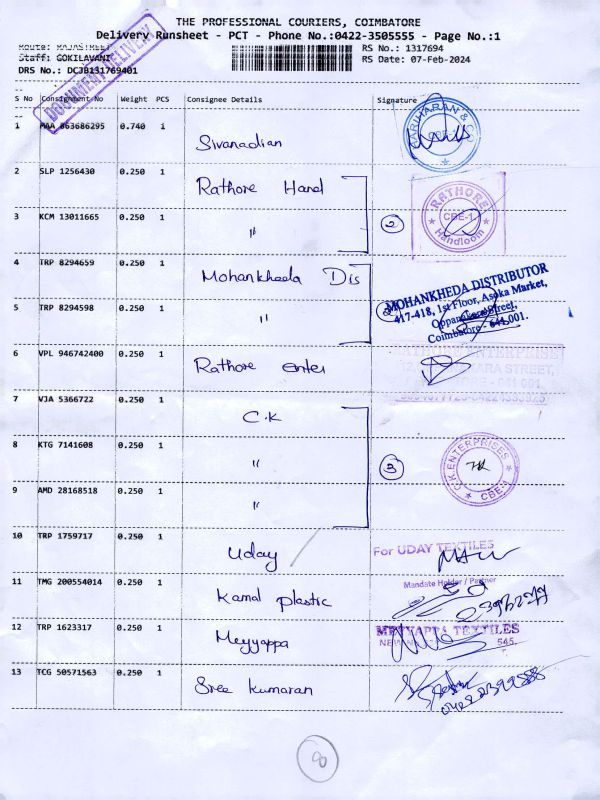 THE PROFESSIONAL COURIERS, COIMBATORE
Delivery Runsheet - PCT - Phone No.:0422-3505555 - Page No.:1
Route: RAJASTREET RS No.: 1317694
Staff: GOKILAVANI RS Date: 07-Feb-2024
DRS No.: DCJB131769401
DOCUMENT DELIVERY
S No Consignment No Weight PCS Consignee Details Signature
1 MAA 863686295 0.740 1 Sivanadian
HARIHARAN &
2 SLP 1256430 0.250 1 Rathore Hand
RATHORE
CBE-1
Handloom
3 KCM 13011665 0.250 1 " 2
4 TRP 8294659 0.250 1 Mohankheda Dis
MOHANKHEDA DISTRIBUTOR
417-418, 1st Floor, Asoka Market,
Street,
Coimbatore - 641 001.
5 TRP 8294598 0.250 1 " 2
6 VPL 946742400 0.250 1 Rathore enter
RATHORE ENTERPRISE
STREET,
7 VJA 5366722 0.250 1 C.K
8 KTG 7141608 0.250 1 " 3
C.K. ENTERPRISES
CBE-1
9 AMD 28168518 0.250 1 "
10 TRP 1759717 0.250 1 Uday
For UDAY TEXTILES
Mandate Holder / Partner
11 TMG 200554014 0.250 1 Kamal plastic
12 TRP 1623317 0.250 1 Meyyappa
MEYYAPPA TEXTILES
545,
13 TCG 50571563 0.250 1 Sree Kumaran